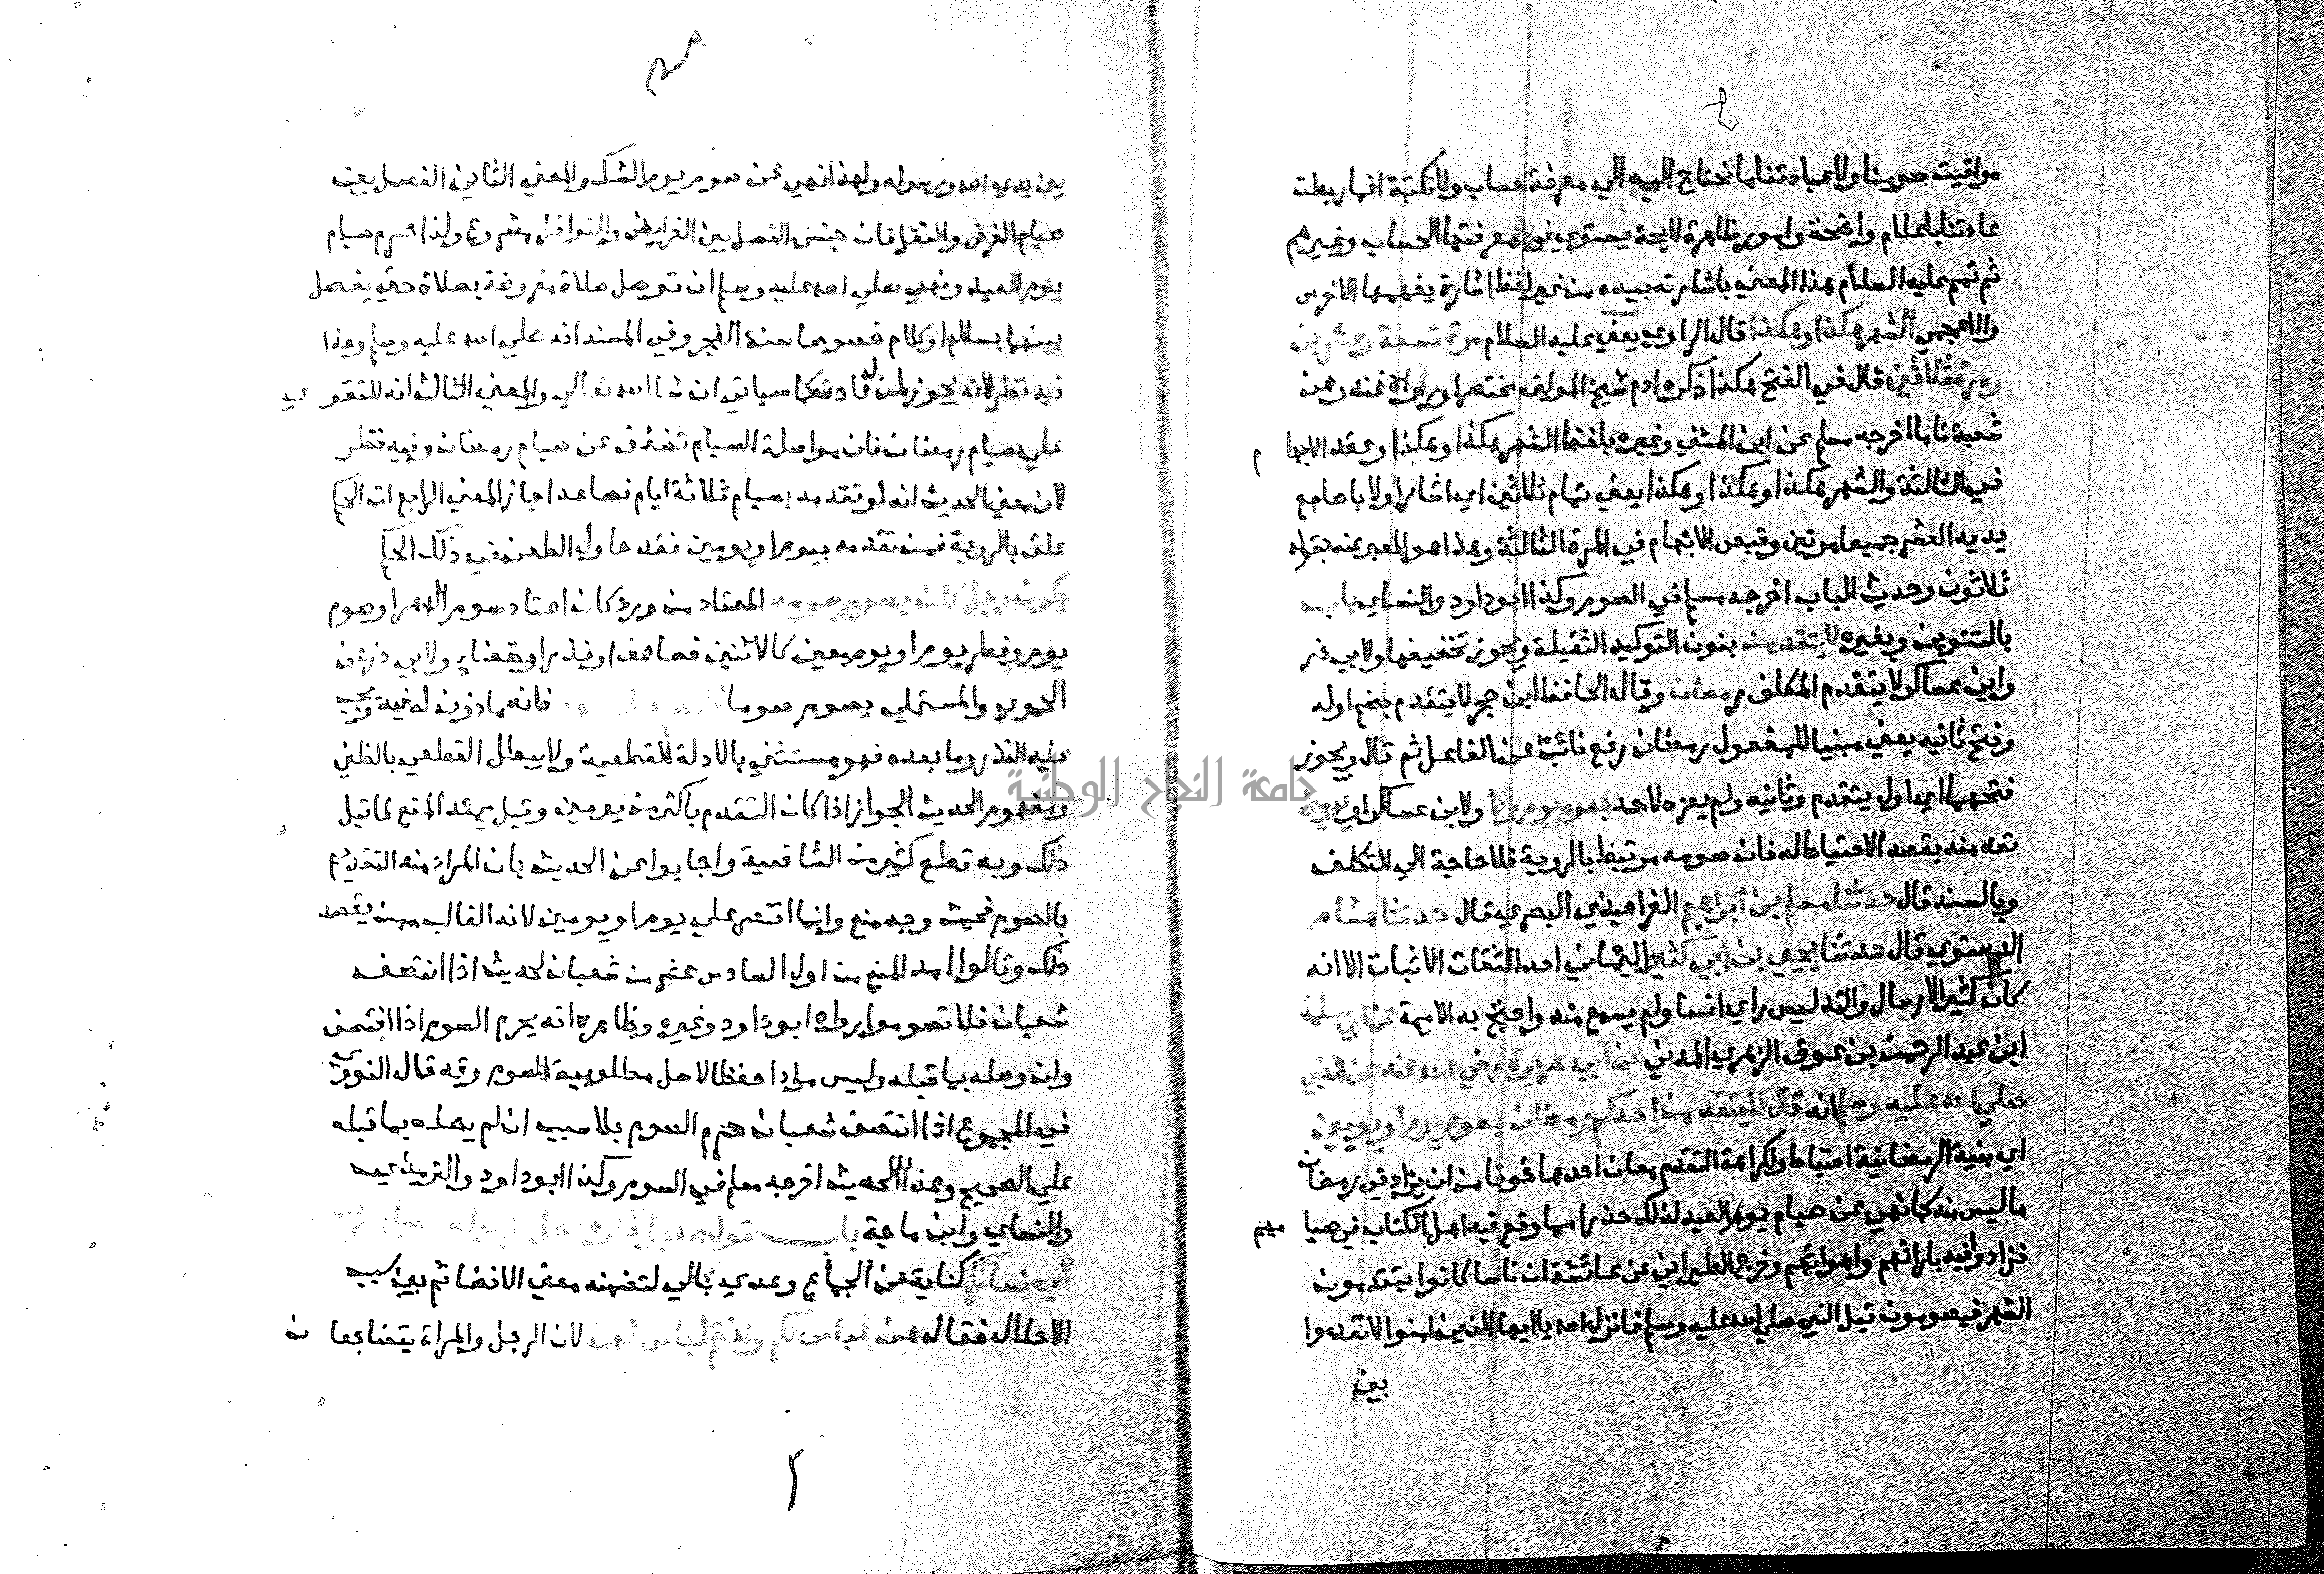 ٤
مواقيت صومنا ولا عبادتنا ما نحتاج اليه الي معرفة حساب ولا كتبة انما ربطت
عبادتنا باعلام واضحة وامور ظاهرة لايحة يستوي في معرفتها الحساب وغيرهم
ثم تمم عليه السلام هذا المعني باشارته بيده من غير لفظ اشارة يفهمها الاخرس
والاعجمي الشهر هكذا وهكذا قال الراوي يعني عليه السلام مرة تسعة وعشرين
ومرة ثلاثين قال في الفتح هكذا ذكره ادم شيخ المولف مختصرا ورواه غندر عن
شعبة تاما اخرجه مسلم عن ابن المثني وغيره بلفظ الشهر هكذا وهكذا وعقد الابها م
في الثالثة والشهر هكذا وهكذا وهكذا يعني تمام ثلاثين اي اشار اولا باصابع
يديه العشر جميعا مرتين وقبض الابهام في المرة الثالثة وهذا هو المعبر عنه بقوله
ثلاثون وحديث الباب اخرجه مسلم في الصوم وكذا ابو داود والنساي باب
بالتنوين وبغيره لا يتقدمن بنون التوكيد الثقيلة ويجوز تخفيفها ولابي ذر
وابن عساكر لا يتقدم المكلف رمضان وقال الحافظ ابن حجر لا يتقدم بضم اوله
وفتح ثانيه يعني مبنيا للمفعول رمضان رفع نائب عن الفاعل ثم قال ويجوز
فتحهما اي اول يتقدم وثانيه ولم يعزه لاحد بصوم يوم ولا ولابن عساكر او يومين
تعه منه بقصد الاحتياط له فان صومه مرتبط بالروية فلا حاجة الي التكلف
وبالسند قال حدثنا مسلم بن ابراهيم الفراهيدي البصري قال حدثنا هشام
الدستوي قال حدثنا يحيي بن ابي كثير اليماني احد الثقات الاثبات الا انه
كان كثير الارسال والتدليس راي انسا ولم يسمع منه واحتج به الايمة عن ابي سلمة
ابن عبد الرحمن بن عوف الزهري المدني عن ابي هريرة رضي الله عنه عن النبي
صلي الله عليه وسلم انه قال لا يتقدمن احدكم رمضان بصوم يوم او يومين
اي بنية الرمضانية احتياطا ولكراهة التقدم معان احدها خوفا من ان يزاد في رمضان
ما ليس منه كما نهي عن صيام يوم العيد لذلك حذرا مما وقع فيه اهل الكتاب في صيا مهم
فزادوا فيه بارائهم واهوائهم وخرج الطبراني عن عائشة ان ناسا كانوا يتقدمون
الشهر فيصومون قبل النبي صلي الله عليه وسلم فانزل الله يا ايها الذين امنوا لا تقدموا
بين
بين يدي الله ورسوله ولهذا نهي عن صوم يوم الشك والمعني الثاني الفصل بين
صيام الفرض والنفل فان جنس الفصل بين الفرايض والنوافل مشروع ولذا حرم صيام
يوم العيد ونهي صلي الله عليه وسلم ان توصل صلاة مفروضة بصلاة حتي يفصل
بينهما بسلام او كلام خصوصا سنة الفجر وفي المسند انه صلي الله عليه وسلم وهذا
فيه نظر لانه يجوز لمن له عادة كما سياتي ان شا الله تعالي والمعني الثالث انه للتقو ي
علي صيام رمضان فان مواصلة الصيام تضعف عن صيام رمضان وفيه نظر
لان معني الحديث انه لو تقدمه بصيام ثلاثة ايام فصاعدا جاز المعني الرابع ان الحكم
علق بالروية فمن تقدمه بيوم او يومين فقد حاول الطعن في ذلك الحكم
يكون رجل كان يصوم صومه المعتاد من ورد كان اعتاد صوم الدهر او صوم
يوم وفطر يوم او يوم معين كالاثنين فصادف او نذر او قضاء ولابي ذر عن
الحموي والمستملي يصوم صوما فانه ماذون له فيه ويجب
عليه النذر وما بعده فهو مستثني بالادلة القطعية ولا يبطل القطعي بالظني
ومفهوم الحديث الجواز اذا كان التقدم باكثر من يومين وقيل يمتد المنع لما قبل
ذلك وبه قطع كثير من الشافعية واجابوا عن الحديث بان المراد منه التقديم
بالصوم فحيث وجد منع وانما اقتصر علي يوم او يومين لانه الغالب ممن يقصد
ذلك وقالوا امد المنع من اول السادس عشر من شعبان لحديث اذا انتصف
شعبان فلا تصوموا رواه ابو داود وغيره وظاهره انه يحرم الصوم اذا انتصف
وان وصله بما قبله وليس مرادا حفظا لاصل مطلوبية الصوم وقد قال النووي
في المجموع اذا انتصف شعبان حرم الصوم بلا سبب ان لم يصله بما قبله
علي الصحيح وهذا الحديث اخرجه مسلم في الصوم وكذا ابو داود والترمذي
والنساي وابن ماجة باب قول الله
الي نسائكم كناية عن الجماع وعدي بالي لتضمنه معني الافضا ثم بين سبب
الاحلال فقال هن لباس لكم وانتم لباس لهن لان الرجل والمراة يتضاجعا ن
جامعة النجاح الوطنية